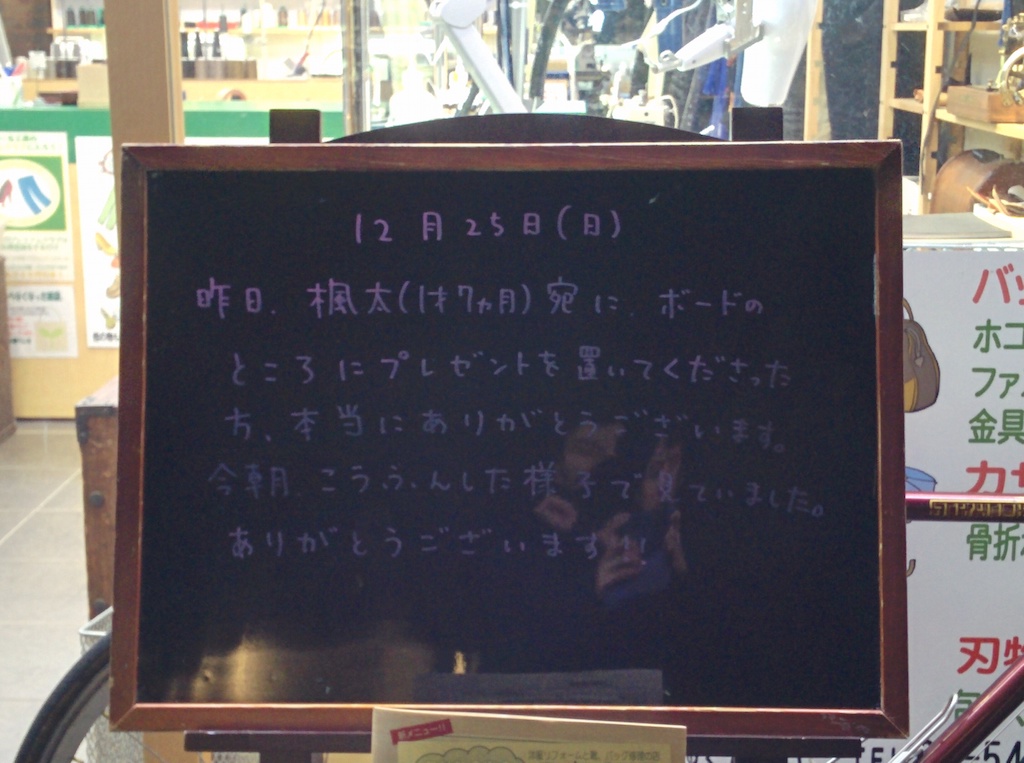 12月25日(日)
昨日、楓太(1才7ヵ月)宛に、ボードの
ところにプレゼントを置いてくださった
方、本当にありがとうございます。
今朝、こうふんした様子で見ていました。
ありがとうございます!!
バッ
ホコ
ファ
金具
カサ
骨折
刃物
TEL
54
新メニュー!!
洋服リフォームと靴、バッグ修理の店